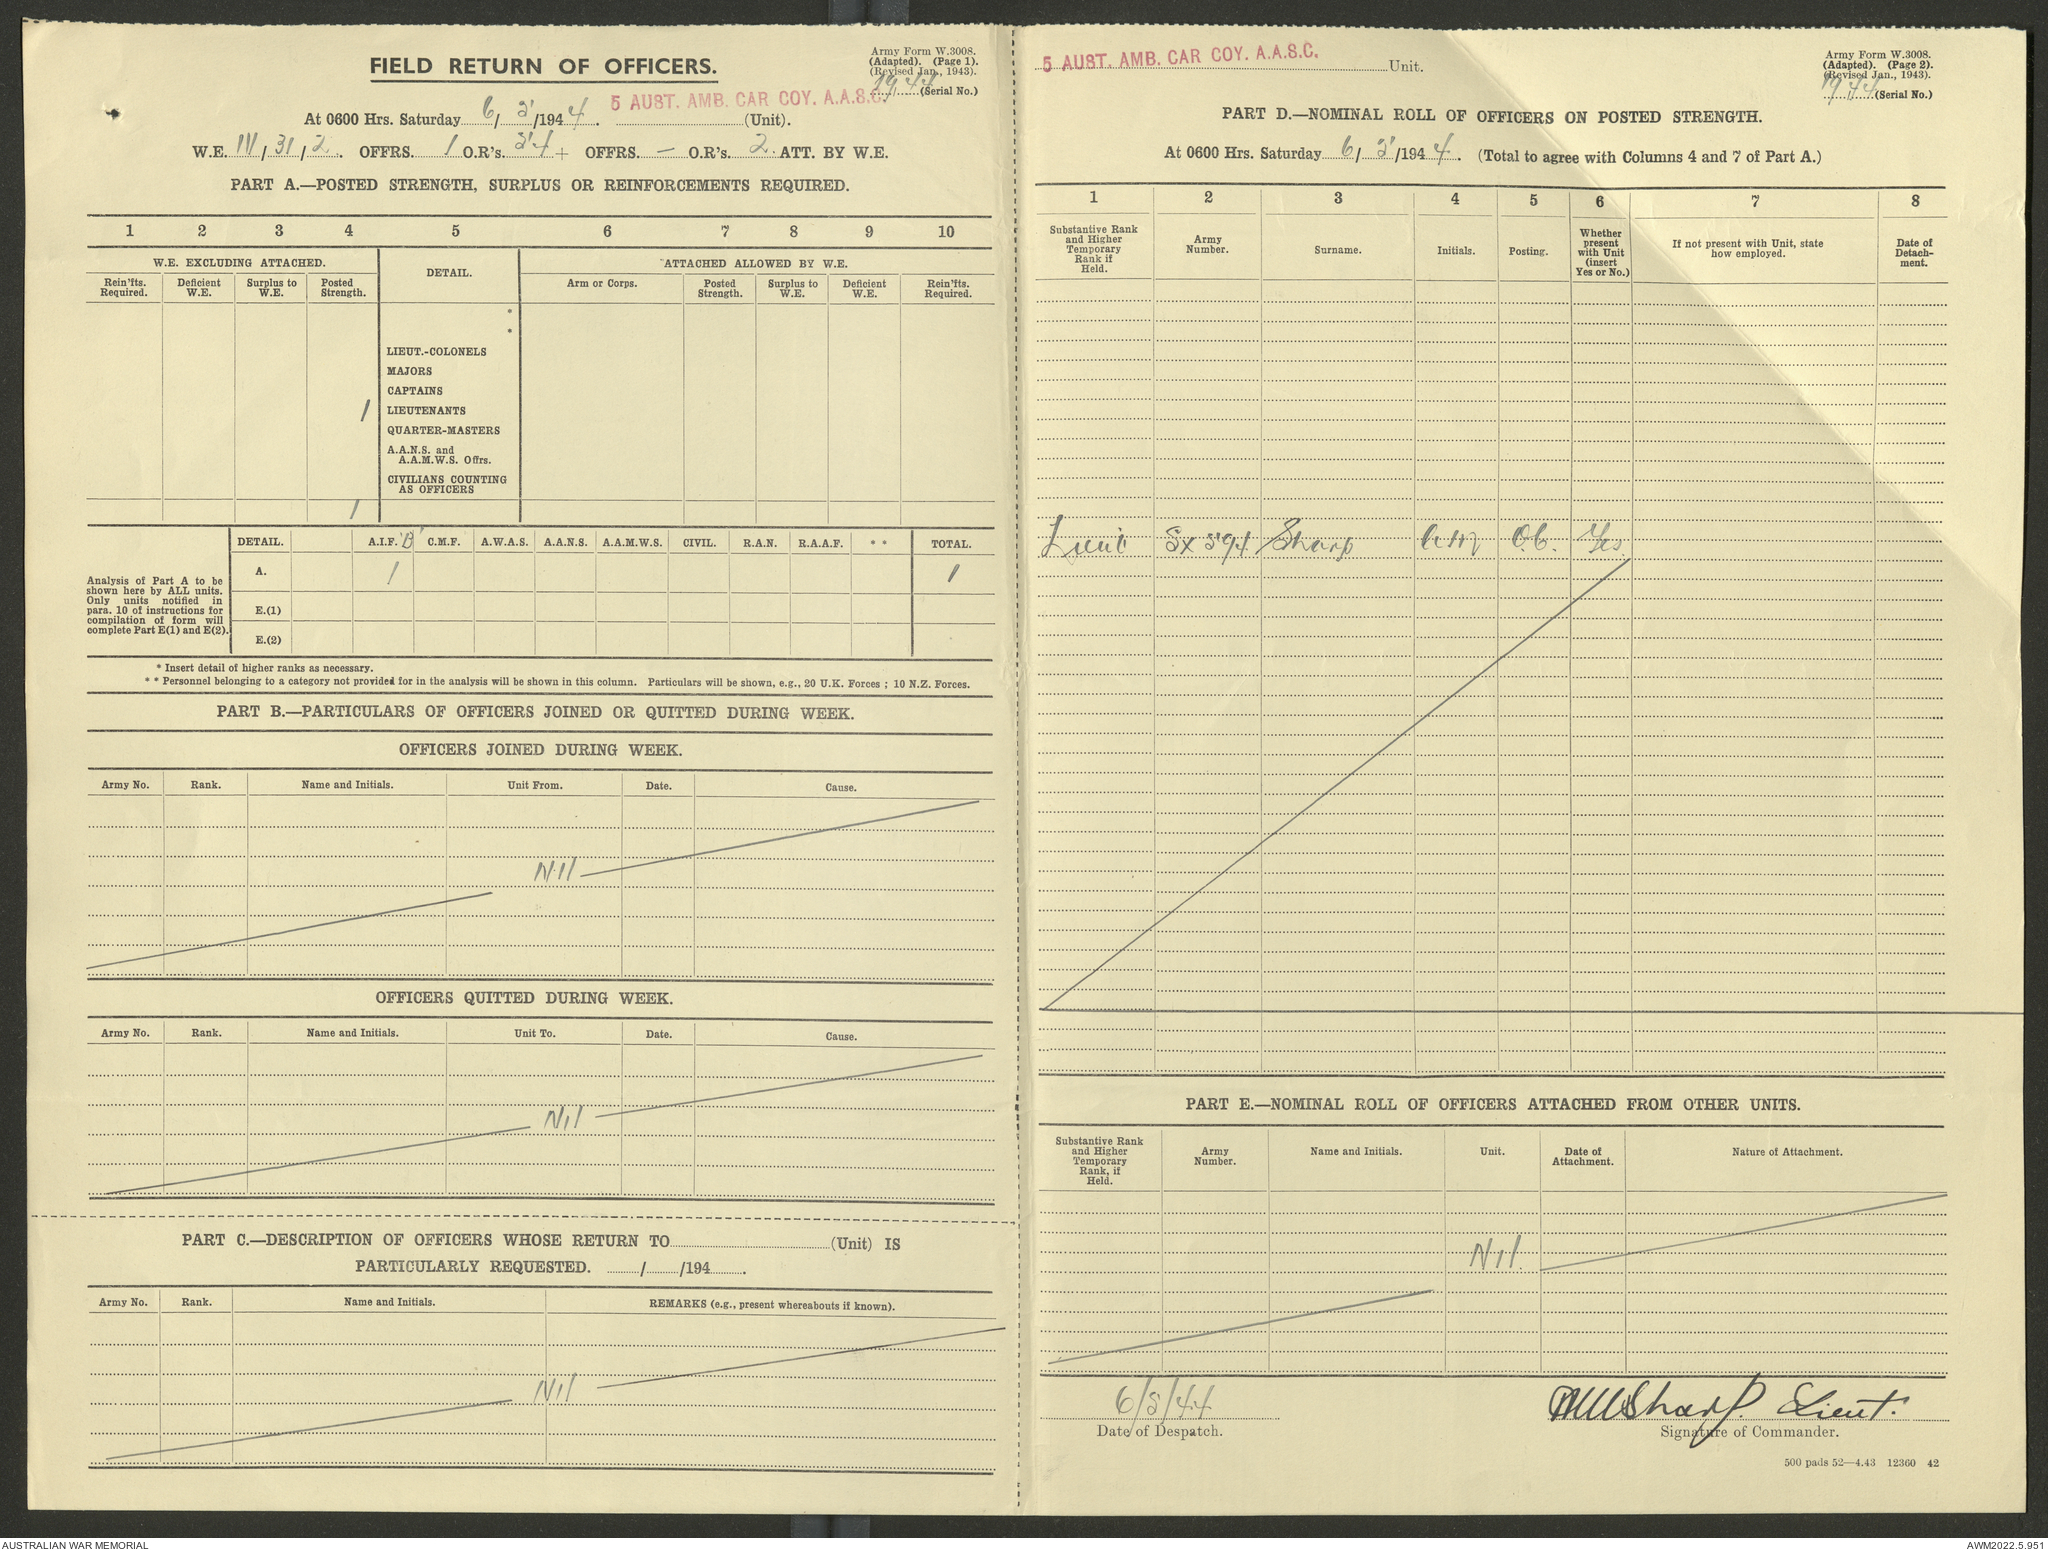 FIELD RETURN OF OFFICERS.
Army Form W.3008.
(Adapted). (Page 1).
(Revised Jan., 1943).
1944 (Serial No.)
At 0600 Hrs. Saturday 6/5/1944. 5 AUST. AMB. CAR COY. A.A.S.C. (Unit).
W.E. III/31/2. OFFRS. 1 O.R's. 54 + OFFRS. — O.R's. 2. ATT. BY W.E.
PART A.—POSTED STRENGTH, SURPLUS OR REINFORCEMENTS REQUIRED.
1 2 3 4 5 6 7 8 9 10
W.E. EXCLUDING ATTACHED. DETAIL. ATTACHED ALLOWED BY W.E.
Rein'fts. Required. Deficient W.E. Surplus to W.E. Posted Strength. Arm or Corps. Posted Strength. Surplus to W.E. Deficient W.E. Rein'fts. Required.
*
*
LIEUT.-COLONELS
MAJORS
CAPTAINS
1 LIEUTENANTS
QUARTER-MASTERS
A.A.N.S. and
A.A.M.W.S. Offrs.
CIVILIANS COUNTING
AS OFFICERS
1
DETAIL. A.I.F. B C.M.F. A.W.A.S. A.A.N.S. A.A.M.W.S. CIVIL. R.A.N. R.A.A.F. * * TOTAL.
A. 1 1
Analysis of Part A to be
shown here by ALL units.
Only units notified in
para. 10 of instructions for
compilation of form will
complete Part E(1) and E(2).
E.(1)
E.(2)
* Insert detail of higher ranks as necessary.
* * Personnel belonging to a category not provided for in the analysis will be shown in this column. Particulars will be shown, e.g., 20 U.K. Forces ; 10 N.Z. Forces.
PART B.—PARTICULARS OF OFFICERS JOINED OR QUITTED DURING WEEK.
OFFICERS JOINED DURING WEEK.
Army No. Rank. Name and Initials. Unit From. Date. Cause.
Nil
OFFICERS QUITTED DURING WEEK.
Army No. Rank. Name and Initials. Unit To. Date. Cause.
Nil
PART C.—DESCRIPTION OF OFFICERS WHOSE RETURN TO (Unit) IS
PARTICULARLY REQUESTED. / /194 .
Army No. Rank. Name and Initials. REMARKS (e.g., present whereabouts if known).
Nil
5 AUST. AMB. CAR COY. A.A.S.C. Unit.
Army Form W.3008.
(Adapted). (Page 2).
(Revised Jan., 1943).
1944 (Serial No.)
PART D.—NOMINAL ROLL OF OFFICERS ON POSTED STRENGTH.
At 0600 Hrs. Saturday 6/5/1944. (Total to agree with Columns 4 and 7 of Part A.)
1 2 3 4 5 6 7 8
Substantive Rank and Higher Temporary Rank if Held. Army Number. Surname. Initials. Posting. Whether present with Unit (insert Yes or No.) If not present with Unit, state how employed. Date of Detach-ment.
Lieut Sx 594 Sharp OC. Yes
PART E.—NOMINAL ROLL OF OFFICERS ATTACHED FROM OTHER UNITS.
Substantive Rank and Higher Temporary Rank, if Held. Army Number. Name and Initials. Unit. Date of Attachment. Nature of Attachment.
Nil.
6/5/44
Date of Despatch.
Sharp. Lieut.
Signature of Commander.
500 pads 52—4.43 12360 42
AUSTRALIAN WAR MEMORIAL
AWM2022.5.951